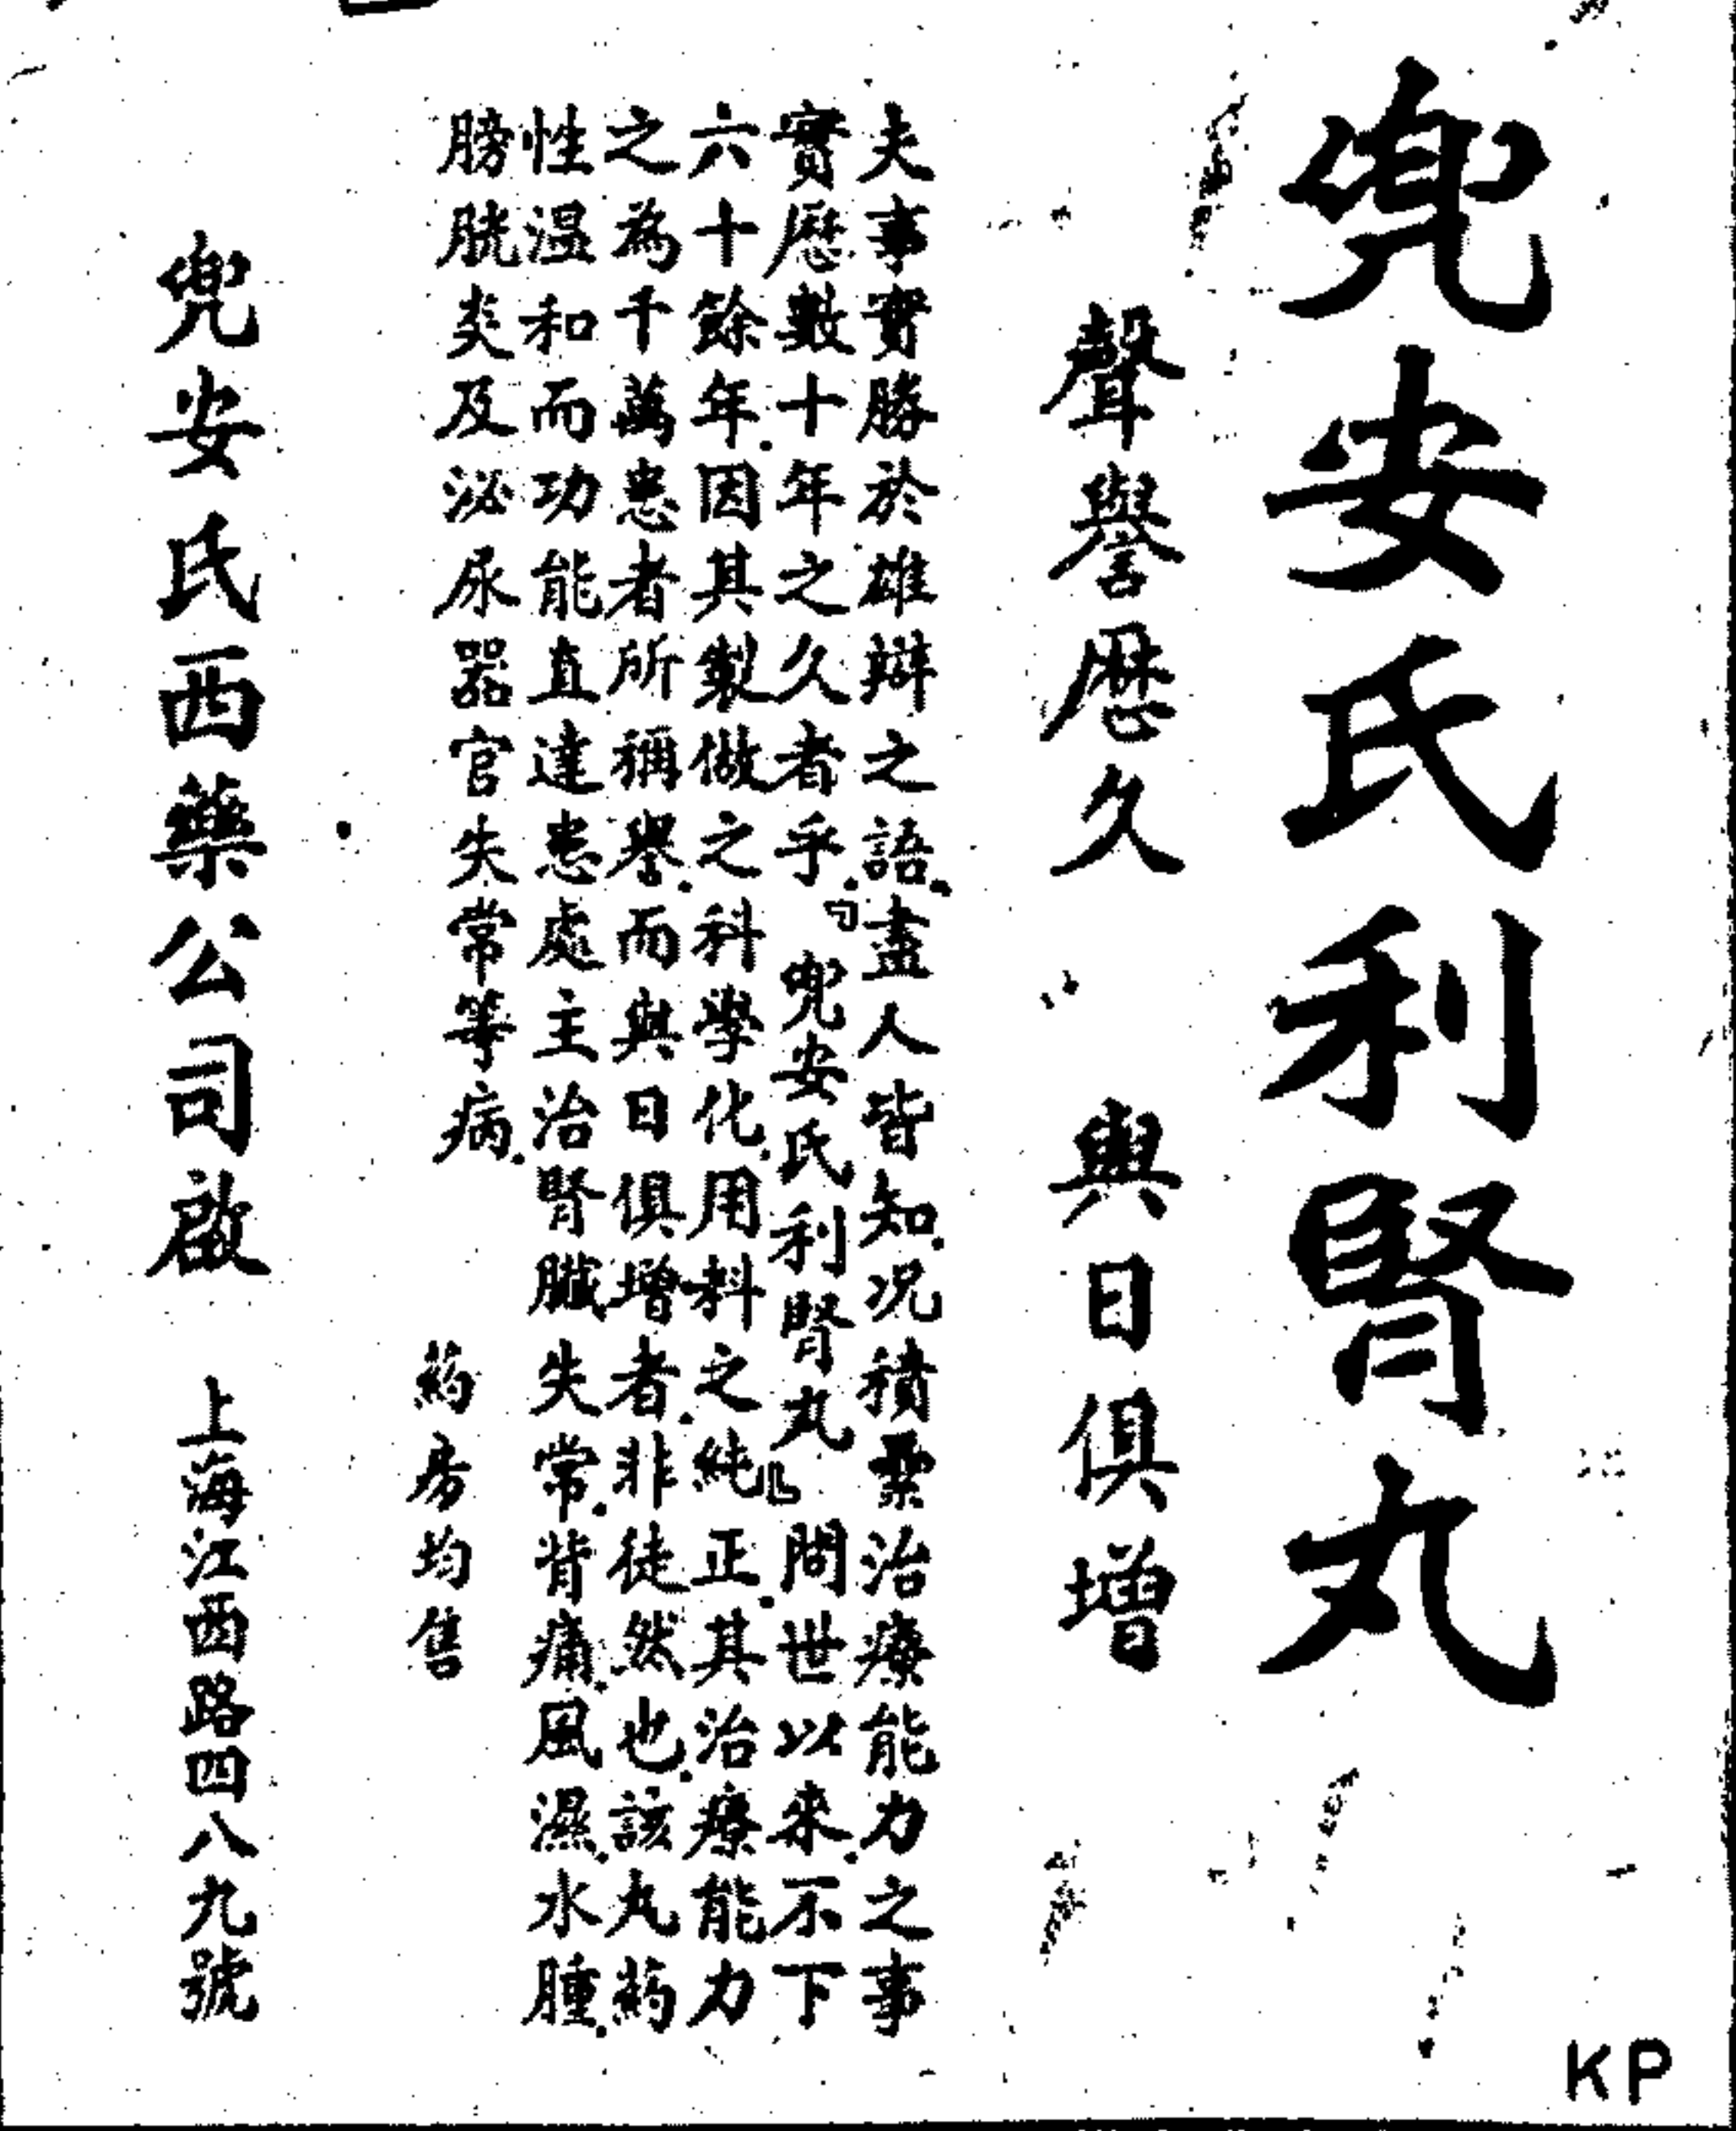 兜安氏利腎丸
聲譽歷久　與日俱增
夫事實勝於雄辯之語．盡人皆知．况積累治療能力之事
實歷數十年之久者乎．「兜安氏利腎丸」問世以來．不下
六十餘年．因其製做之科學化．用料之純正．其治療能力
之為千萬患者所稱譽．而與日俱增者．非徒然也．該丸葯
性溫和而功能直達患處主治腎臟失常．背痛．風濕．水腫．
膀胱炎及泌尿器官失常等病．
葯房均售
兜安氏西藥公司啟　上海江西路四八九號
KP